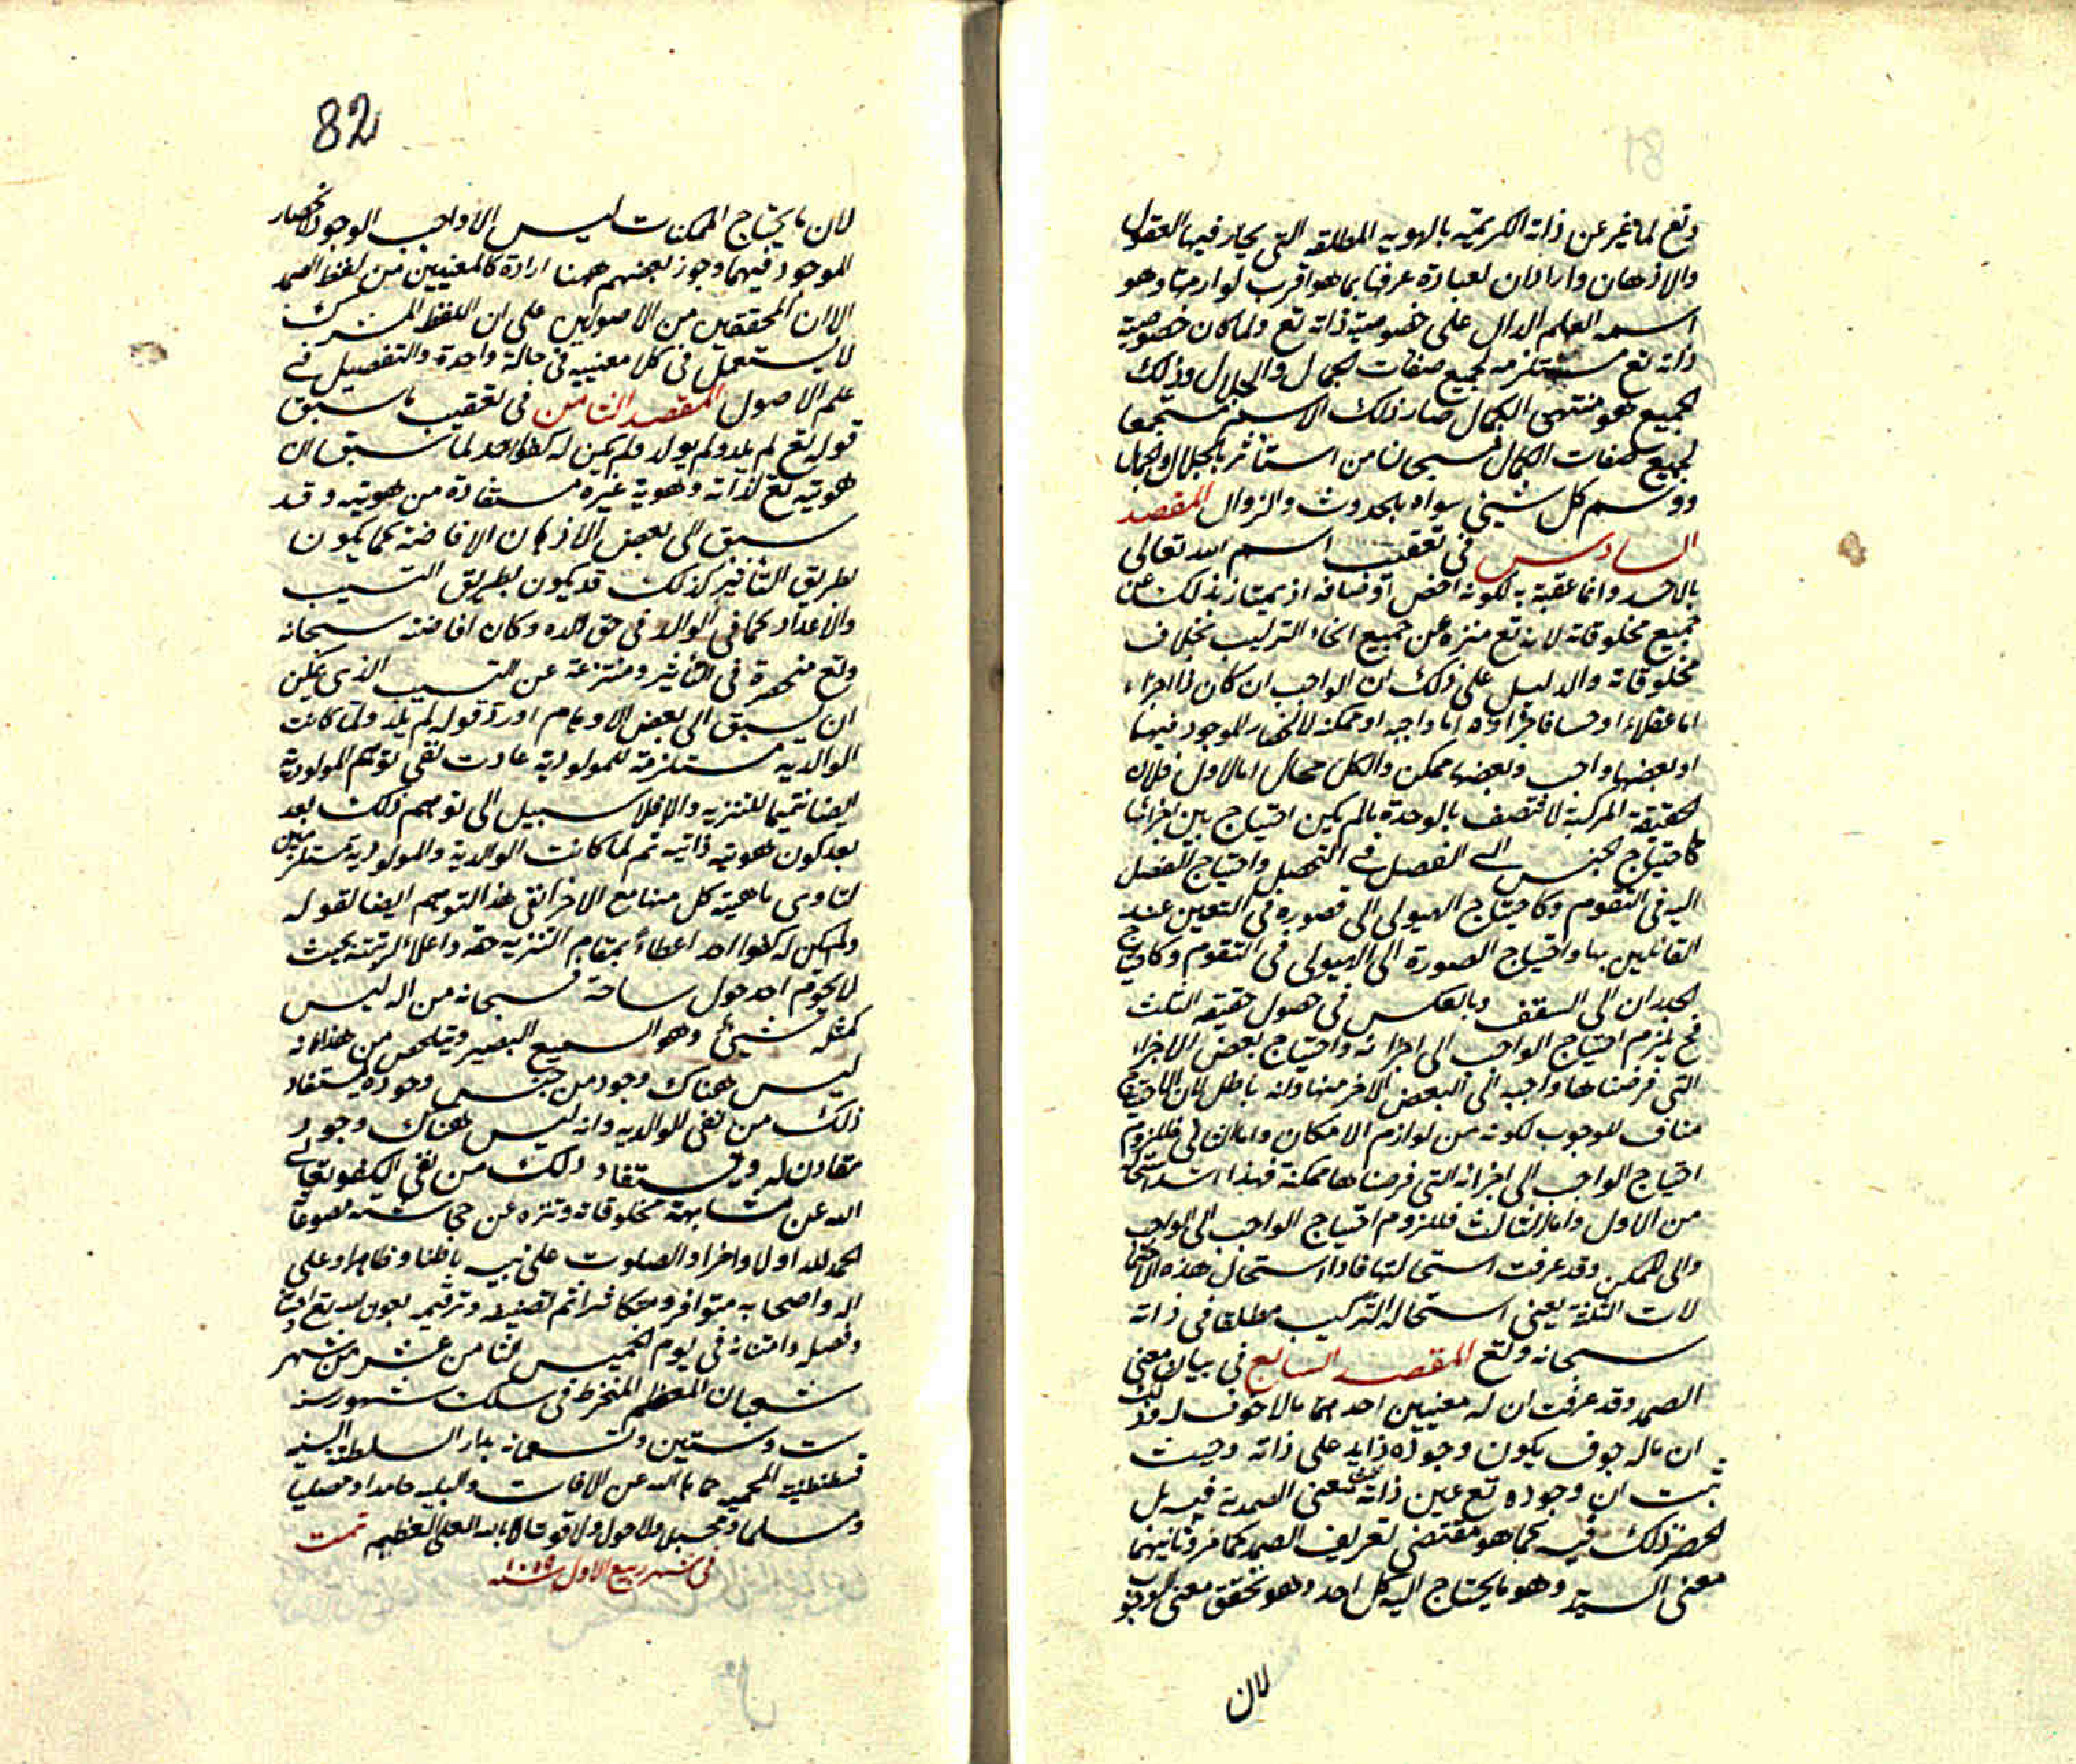 وتع لما عبر عن ذاته الكريمة بالهوية المطلقة التى يحار فيها العقول
والاذهان وارادان لعبارة عرفنا بما هو اقرب لوازمها وهو
اسمه العلم الدال على خصوصية ذاته تع ولما كان خصوصية
ذاته تع مستلزمه لجميع صفات الجمال والجلال وذلك
الجميع هو منتهى الكمال صار ذلك الاسم مستجمعا
لجميع صفات الكمال فسبحان من استأثر بالجلال والجمال
ووسم كل شيئ سواه بالحدوث والزوال المقصد
السادس فى تعقيب اسم الله تعالى
بالاحد وانما عقبه به لكونه اخص اوصافه اذ يمتاز بذلك عن
جميع مخلوقاته لانه تع منزه عن جميع انحاء التركيب بخلاف
مخلوقاته والدليل على ذلك ان الواجب ان كان ذا اجزاء
اما عقلا او حسا فاجزاؤه اما واجبه او ممكنه لانحصار الموجود فيهما
او بعضها واجب وبعضها ممكن والكل محال اما الاول فلان
الحقيقة المركبة لا تتصف بالوحدة مالم يكن احتياج بين اجزائها
كاحتياج الجنس الى الفصل فى التحصل واحتياج الفصل
اليه فى التقوم وكاحتياج الهيولى الى الصورة فى التعين عند
القائلين بها واحتياج الصورة الى الهيولى فى التقوم وكاحتياج
الجدران الى السقف وبالعكس فى حصول حقيقة الثلث
فح يلزم احتياج الواجب الى اجزائه واحتياج بعض الاجزاء
التى فرضناها واجبه الى البعض الاخر منها وانه باطل لان الاحتياج
مناف للوجوب لكونه من لوازم الامكان واما الثانى فللزوم
احتياج الواجب الى اجزائه التى فرضناها ممكنة فهذا اشد استحالة
من الاول واما الثالث فللزوم احتياج الواجب الى الواجب
والى الممكن وقد عرفت استحالتها فاذا استحال هذه الاحتما
لات الثلثة يعنى استحالة التركيب مطلقا فى ذاته
سبحانه وتع المقصد السابع فى بيان معنى
الصمد وقد عرفت ان له معنيين احدهما مالا جوف له وذلك
ان ماله جوف يكون وجوده زايد على ذاته وحيث
ثبت ان وجوده تع عين ذاته معنى الصمدية فيه بل
انحصر ذلك فيه كما هو مقتضى تعريف الصمد كما مر وثانيهما
معنى السيد وهو ما يحتاج اليه كل احد وهو تحقق معنى الوجوب
لان
82
لان ما يحتاج الممكنات ليس الا واجب الوجود لانحصار
الموجود فيهما وجوز بعضهم ههنا ارادة كلا المعنيين من لفظ الصمد
الا ان المحققين من الاصوليين على ان اللفظ المشترك
لا يستعمل فى كلا معنييه فى حالة واحدة والتفصيل فى
علم الاصول المقصد الثامن فى تعقيب ما سبق
قوله تع لم يلد ولم يولد ولم يكن له كفوا احد لما سبق ان
هويته تع لذاته وهوية غيره مستفادة من هويته وقد
سبق الى بعض الاذهان الافاضة كما يكون
بطريق التأثير كذلك قد يكون بطريق التسبب
والاعداد كما فى الوالد فى حق ولده وكان افاضته سبحانه
وتع منحصرة فى التأثير ومتنزعة عن التسبب الذى يمكن
ان يسبق الى بعض الاوهام اورد قوله لم يلد ولما كانت
الوالدية مستلزمة للمولودية عادت نفى توهم المولودية
ايضا تتميما للتنزيه والا فلا سبيل الى توهم ذلك بعد
بعد كون هويته ذاتيه ثم لما كانت الوالدية والمولودية مستلزمتين
لتساوى ماهية كل منهما مع الاخر انفى هذا التوهم ايضا لقوله
ولم يكن له كفوا احد اعطاء بمقام التنزيه حقه واعلاء لرتبته بحيث
لا يحوم احد حول ساحته فسبحانه من اله ليس
كمثله شيئ وهو السميع البصير ويتلخص من هذا انه
ليس هناك وجود من جنس وجوده يستفاد
ذلك من نفى للوالديه وانه ليس هناك وجود
مقارن له ويستفاد ذلك من نفى الكفو تعالى
الله عن مشابهة مخلوقاته وتنزه عن مجانسة مصنوعاته
الحمد لله اولا واخرا والصلوت على نبيه باطنا وظاهرا وعلى
اله واصحابه متوافرا ومتكاثرا تم تصنيفه وترقيمه بعون الله تع
وفضله وامتنانه فى يوم الخميس الثامن عشر من شهر
شعبان المعظم المنخرط فى سلك شهور سنه
ست وستين وتسعمائه بدار السلطنة السنيه
قسطنطنيه المحميه حماها الله عن الافات والبليه حامدا ومصليا
ومسلما ومحسبلا ولا حول ولا قوة الا بالله العلى العظيم تمت
فى شهر ربيع الاول سنه ١٠١٩